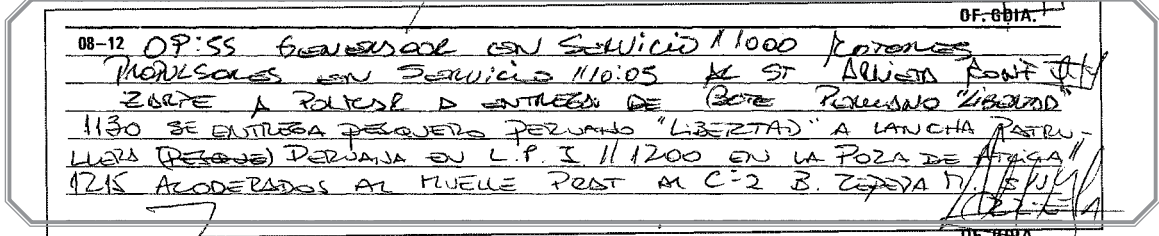 OF. GDIA.
08-12 09:55 GENERADOR EN SERVICIO // 1000 MOTORES
PROPULSORES EN SERVICIO // 10:05 AL ST ARRIETA
ZARPE A POLICAR A ENTREGA DE BOTE PERUANO "LIBERTAD"
1130 SE ENTREGA PESQUERO PERUANO "LIBERTAD" A LANCHA PATRU-
LLERA (PESQUE) PERUANA EN L.P.I // 1200 EN LA POZA DE ARICA //
1215 ACODERADOS AL MUELLE PRAT AL C-2 B. ZEPEDA M.
OF. GDIA.